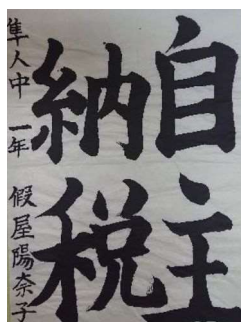 自主
納税
隼人中 一年 假屋陽奈子